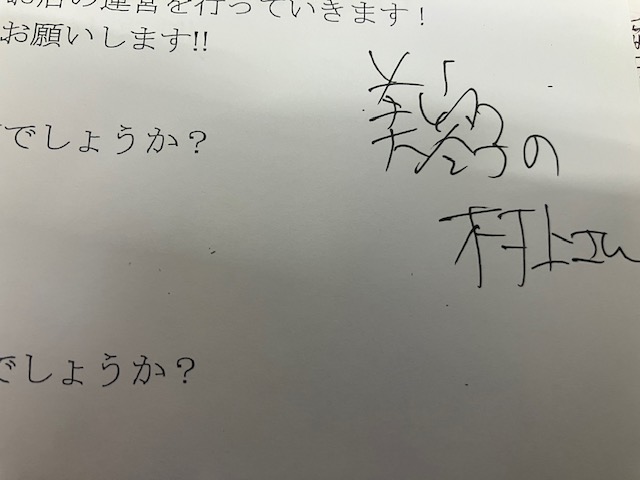 お店の運営を行っていきます！
お願いします!!
でしょうか？
の
村上
でしょうか？